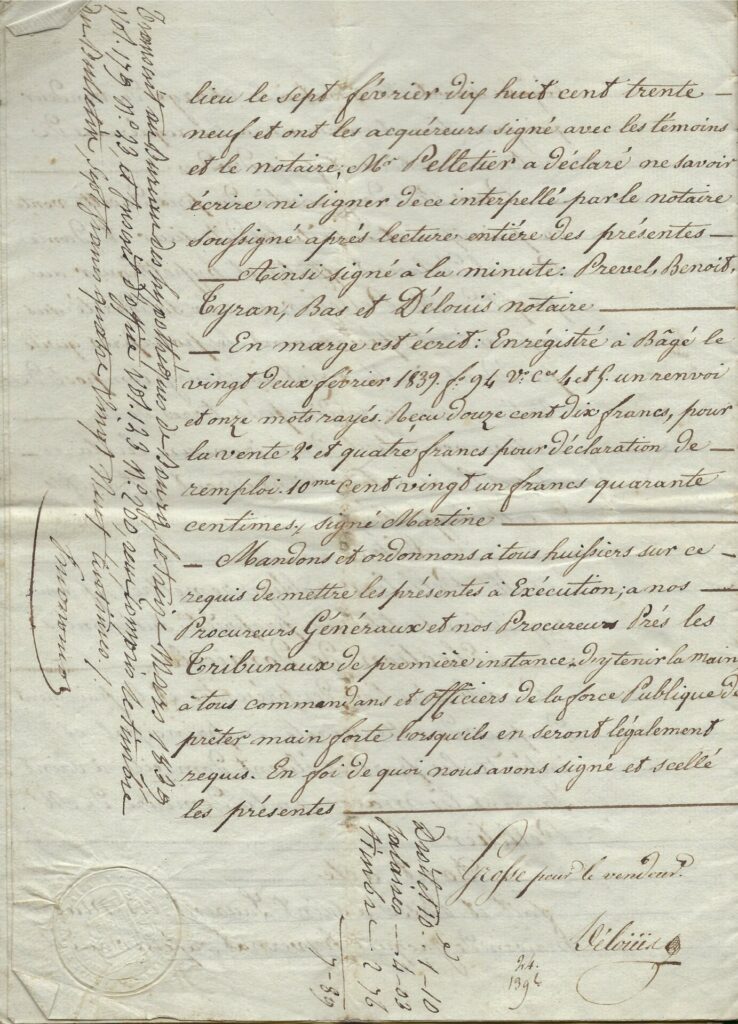 lieu le sept février dix huit cent trente —
neuf et ont les acquéreurs signé avec les témoins
et le notaire; Mr Pelletier a déclaré ne savoir
écrire ni signer de ce interpellé par le notaire
soussigné aprés lecture entiére des présentes —
— Ainsi signé à la minute: Prevel, Benoit,
Tyran, Bas et Délouis notaire —
— En marge est écrit: Enrégistré à Bâgé le
vingt deux février 1839. fo 94 Vo Ces 4 et 5. un renvoi
et onze mots rayés. Reçu douze cent dix francs, pour
la vente 2o et quatre francs pour déclaration de —
remploi. 10me cent vingt un francs quarante
centimes, signé Martine —
— Mandons et ordonnons à tous huissiers sur ce —
requis de mettre les présentes à Exécution; a nos —
Procureurs Généraux et nos Procureurs Prés les
Tribunaux de première instance d'y tenir la main
à tous commandans et officiers de la force Publique de
prêter main forte lorsqu'ils en seront légalement
requis. En foi de quoi nous avons signé et scellé
les présentes —
Grosse pour le vendeur.
Délouis
24.
Transcrit au Bureau des hypothèques de Bourg le treize Mars 1839
vol. 179 no 33 et inscrit d'office vol. 123 no 260 y compris le timbre
du Bulletin, sept francs quatre vingt neuf centimes,
Droit et 10e 1-10
Salaires — 4-03
timbre 2 76
7-89